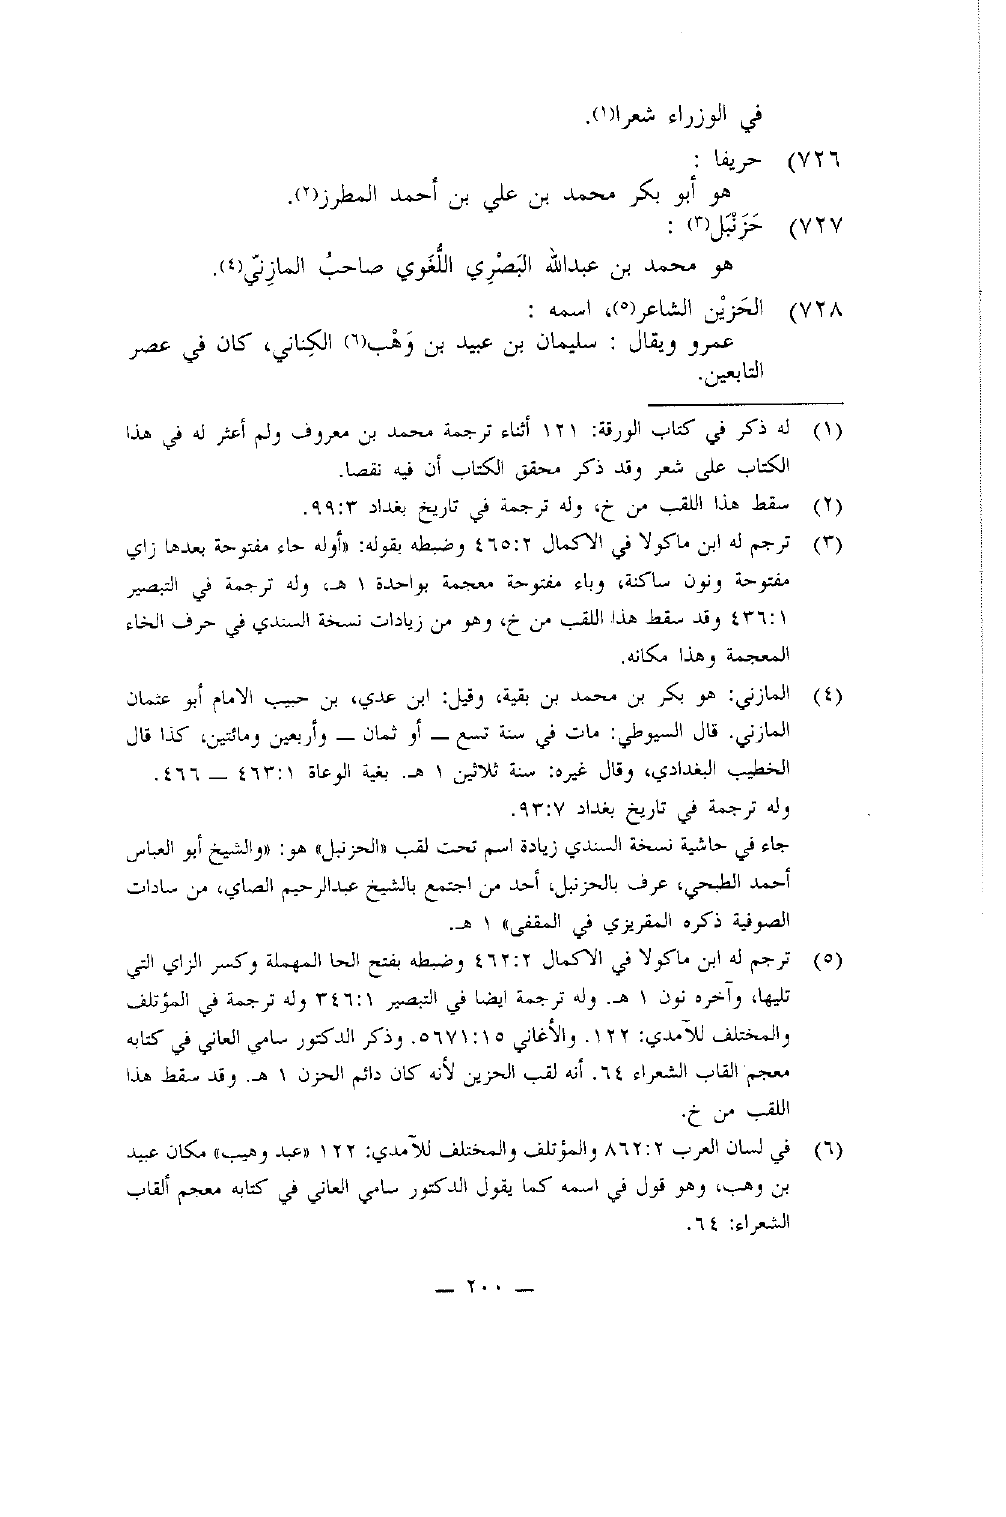 في الوزراء شعرا(١).
٧٢٦) حريفا :
هو أبو بكر محمد بن علي بن أحمد المطرز(٢).
٧٢٧) حَزَنْبَل(٣) :
هو محمد بن عبدالله البَصْرِي اللُّغَوي صاحبُ المازِنيّ(٤).
٧٢٨) الحَزيْن الشاعر(٥)، اسمه :
عمرو ويقال : سليمان بن عبيد بن وَهْب(٦) الكِناني، كان في عصر
التابعين.
(١) له ذكر في كتاب الورقة: ١٢١ أثناء ترجمة محمد بن معروف ولم أعثر له في هذا
الكتاب على شعر وقد ذكر محقق الكتاب أن فيه نقصا.
(٢) سقط هذا اللقب من خ، وله ترجمة في تاريخ بغداد ٩٩:٣.
(٣) ترجم له ابن ماكولا في الاكمال ٤٦٥:٢ وضبطه بقوله: «أوله حاء مفتوحة بعدها زاي
مفتوحة ونون ساكنة، وباء مفتوحة معجمة بواحدة ١ هـ، وله ترجمة في التبصير
٤٣٦:١ وقد سقط هذا اللقب من خ، وهو من زيادات نسخة السندي في حرف الخاء
المعجمة وهذا مكانه.
(٤) المازني: هو بكر بن محمد بن بقية، وقيل: ابن عدي، بن حبيب الامام أبو عثمان
المازني. قال السيوطي: مات في سنة تسع — أو ثمان — وأربعين ومائتين، كذا قال
الخطيب البغدادي، وقال غيره: سنة ثلاثين ١ هـ. بغية الوعاة ٤٦٣:١ — ٤٦٦.
وله ترجمة في تاريخ بغداد ٩٣:٧.
جاء في حاشية نسخة السندي زيادة اسم تحت لقب «الحزنبل» هو: «والشيخ أبو العباس
أحمد الطبحي، عرف بالحزنبل، أحد من اجتمع بالشيخ عبدالرحيم الصاي، من سادات
الصوفية ذكره المقريزي في المقفى» ١ هـ.
(٥) ترجم له ابن ماكولا في الاكمال ٤٦٢:٢ وضبطه بفتح الحا المهملة وكسر الزاي التي
تليها، وآخره نون ١ هـ. وله ترجمة ايضا في التبصير ٣٤٦:١ وله ترجمة في المؤتلف
والمختلف للآمدي: ١٢٢. والأغاني ٥٦٧١:١٥. وذكر الدكتور سامي العاني في كتابه
معجم القاب الشعراء ٦٤. أنه لقب الحزين لأنه كان دائم الحزن ١ هـ. وقد سقط هذا
اللقب من خ.
(٦) في لسان العرب ٨٦٢:٢ والمؤتلف والمختلف للآمدي: ١٢٢ «عبد وهيب» مكان عبيد
بن وهب، وهو قول في اسمه كما يقول الدكتور سامي العاني في كتابه معجم ألقاب
الشعراء: ٦٤.
— ٢٠٠ —